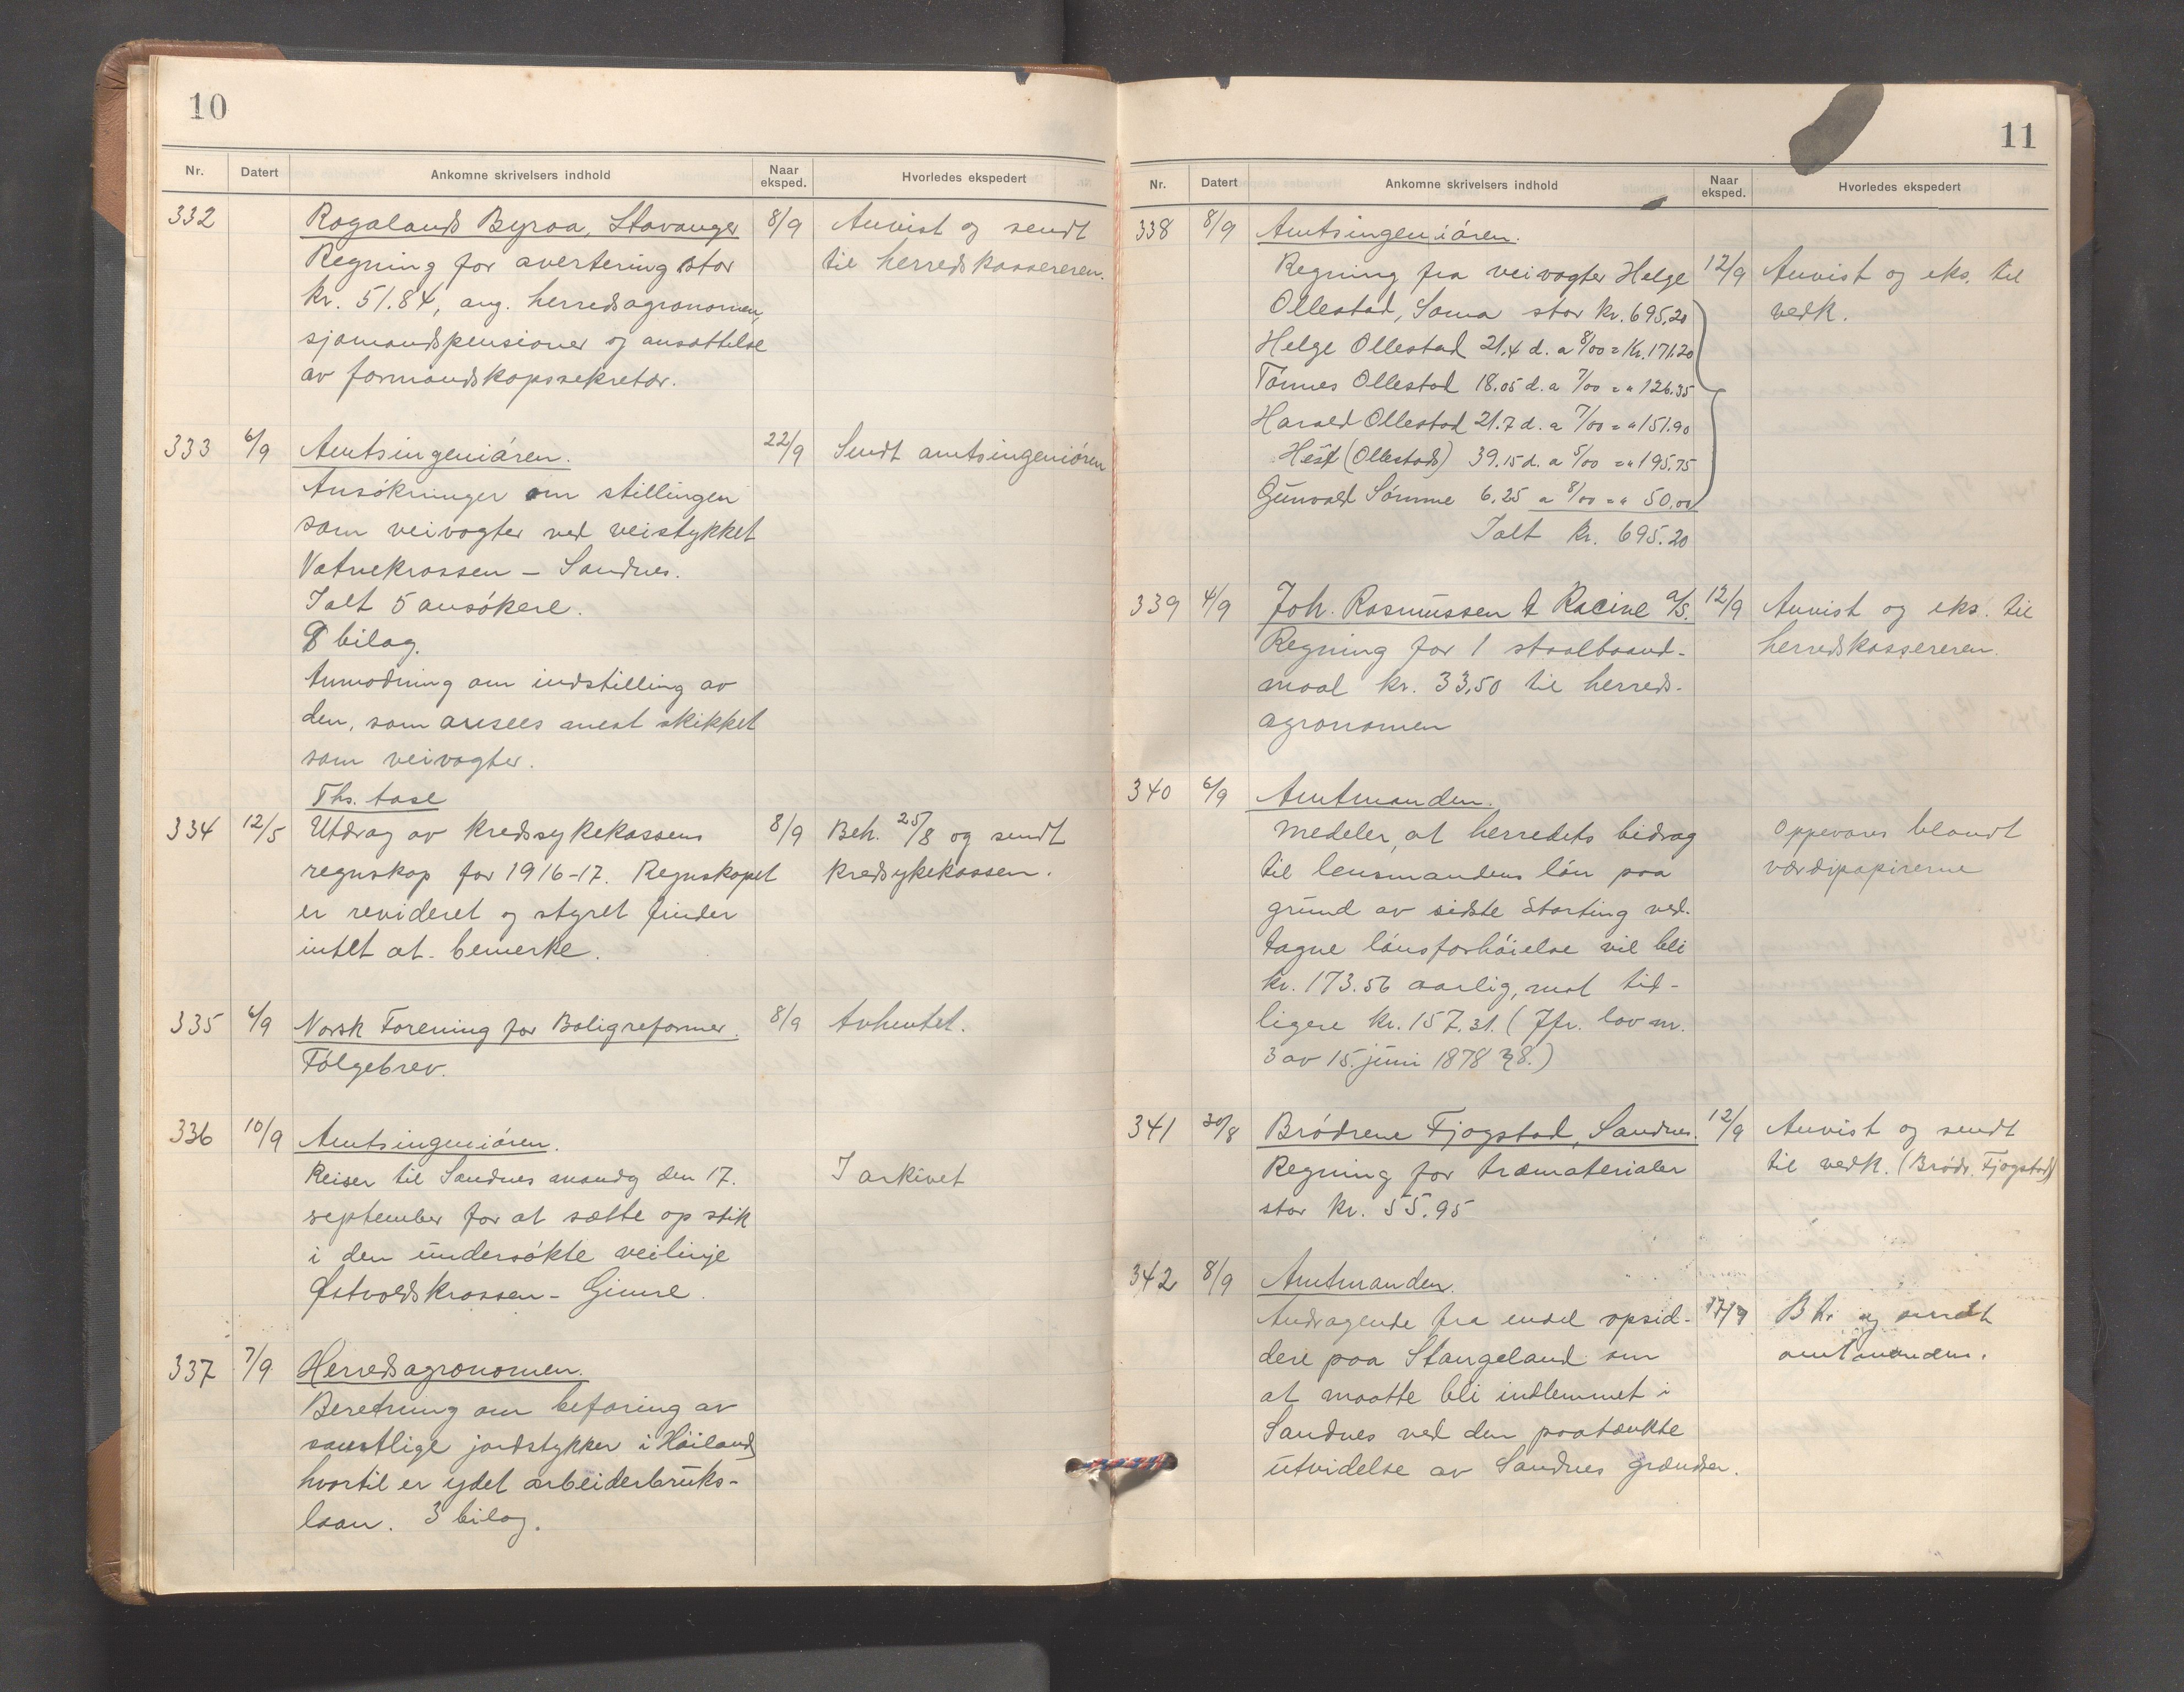 10
Nr. Datert Ankomne skrivelsers indhold Naar eksped. Hvorledes ekspedert
332 Rogalands Byraa, Stavanger 8/9 Anvist og sendt
Regning for avertering stor til herredskassereren.
kr. 51.84, ang. herredsagronomen,
sjømandspensioner og ansættelse
av formandskapssekretær.
333 6/9 Amtsingeniøren. 22/9 Sendt amtsingeniøren
Ansøkninger om stillingen
som veivogter ved veistykket
Vatnekrossen - Sandnes.
Ialt 5 ansøkere.
8 bilag.
Anmodning om indstilling av
den, som ansees mest skikket
som veivogter.
Ths. Aase
334 12/5 Utdrag av kredssykekassens 8/9 Beh. 25/8 og sendt
regnskap for 1916-17. Regnskapet kredsykekassen.
er revideret og styret finder
intet at bemerke.
335 6/9 Norsk Forening for Boligreformer. 8/9 Avhentet.
Følgebrev.
336 10/9 Amtsingeniøren.
Reiser til Sandnes mandg den 17. I arkivet
september for at sætte op stik
i den undersøkte veilinje
Østvoldskrossen - Gimre.
337 7/9 Herredsagronomen.
Beretning om befaring av
samtlige jordstykker i Høiland,
hvortil er ydet arbeiderbruks-
laan. 3 bilag.
11
Nr. Datert Ankomne skrivelsers indhold Naar eksped. Hvorledes ekspedert
338 8/9 Amtsingeniøren.
Regning fra veivogter Helge 12/9 Anvist og eks. til
Ollestad, Soma stor kr. 695,20 vedk.
Helge Ollestad 21,4 d. a 8/00 = Kr. 171.20
Tønnes Ollestad 18.05 d. a 7/00 = " 126.35
Harald Ollestad 21.7 d. a 7/00 = " 151.90
Hest (Ollestads) 39.15 d. a 5/00 = " 195.75
Gunvald Sømme 6.25 a 8/00 = " 50.00
Ialt kr. 695.20
339 4/9 Joh. Rasmussen & Racine a/s. 12/9 Anvist og eks. til
Regning for 1 staalbaand- herredskassereren.
maal kr. 33,50 til herreds-
agronomen
340 6/9 Amtmanden.
Medeler, at herredets bidrag Oppevares blandt
til lensmandens løn paa værdipapirerne
grund av sidste Storting ved-
tagne lønsforhøielse vil bli
kr. 173.56 aarlig, mot tid-
ligere kr. 157.31. (Jfr. lov nr.
3 av 15. juni 1878 § 8.)
341 30/8 Brødrene Fjogstad, Sandnes. 12/9 Anvist og sendt
Regning for træmaterialer til vedk. (Brødr. Fjogstad)
stor kr. 55.95
342 8/9 Amtmanden.
Andragende fra endel opsid- 17/9 Bh. og sendt
dere paa Stangeland om amtmanden.
at maatte bli indlemmet i
Sandnes ved den paatænkte
utvidelse av Sandnes grændser.